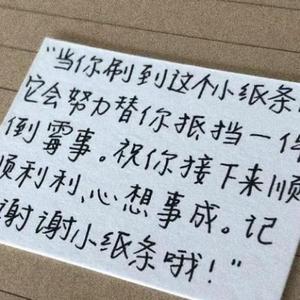 "当你刷到这个小纸条
它会努力替你抵挡一件
倒霉事。祝你接下来顺
顺利利,心想事成。记
谢谢小纸条哦!"